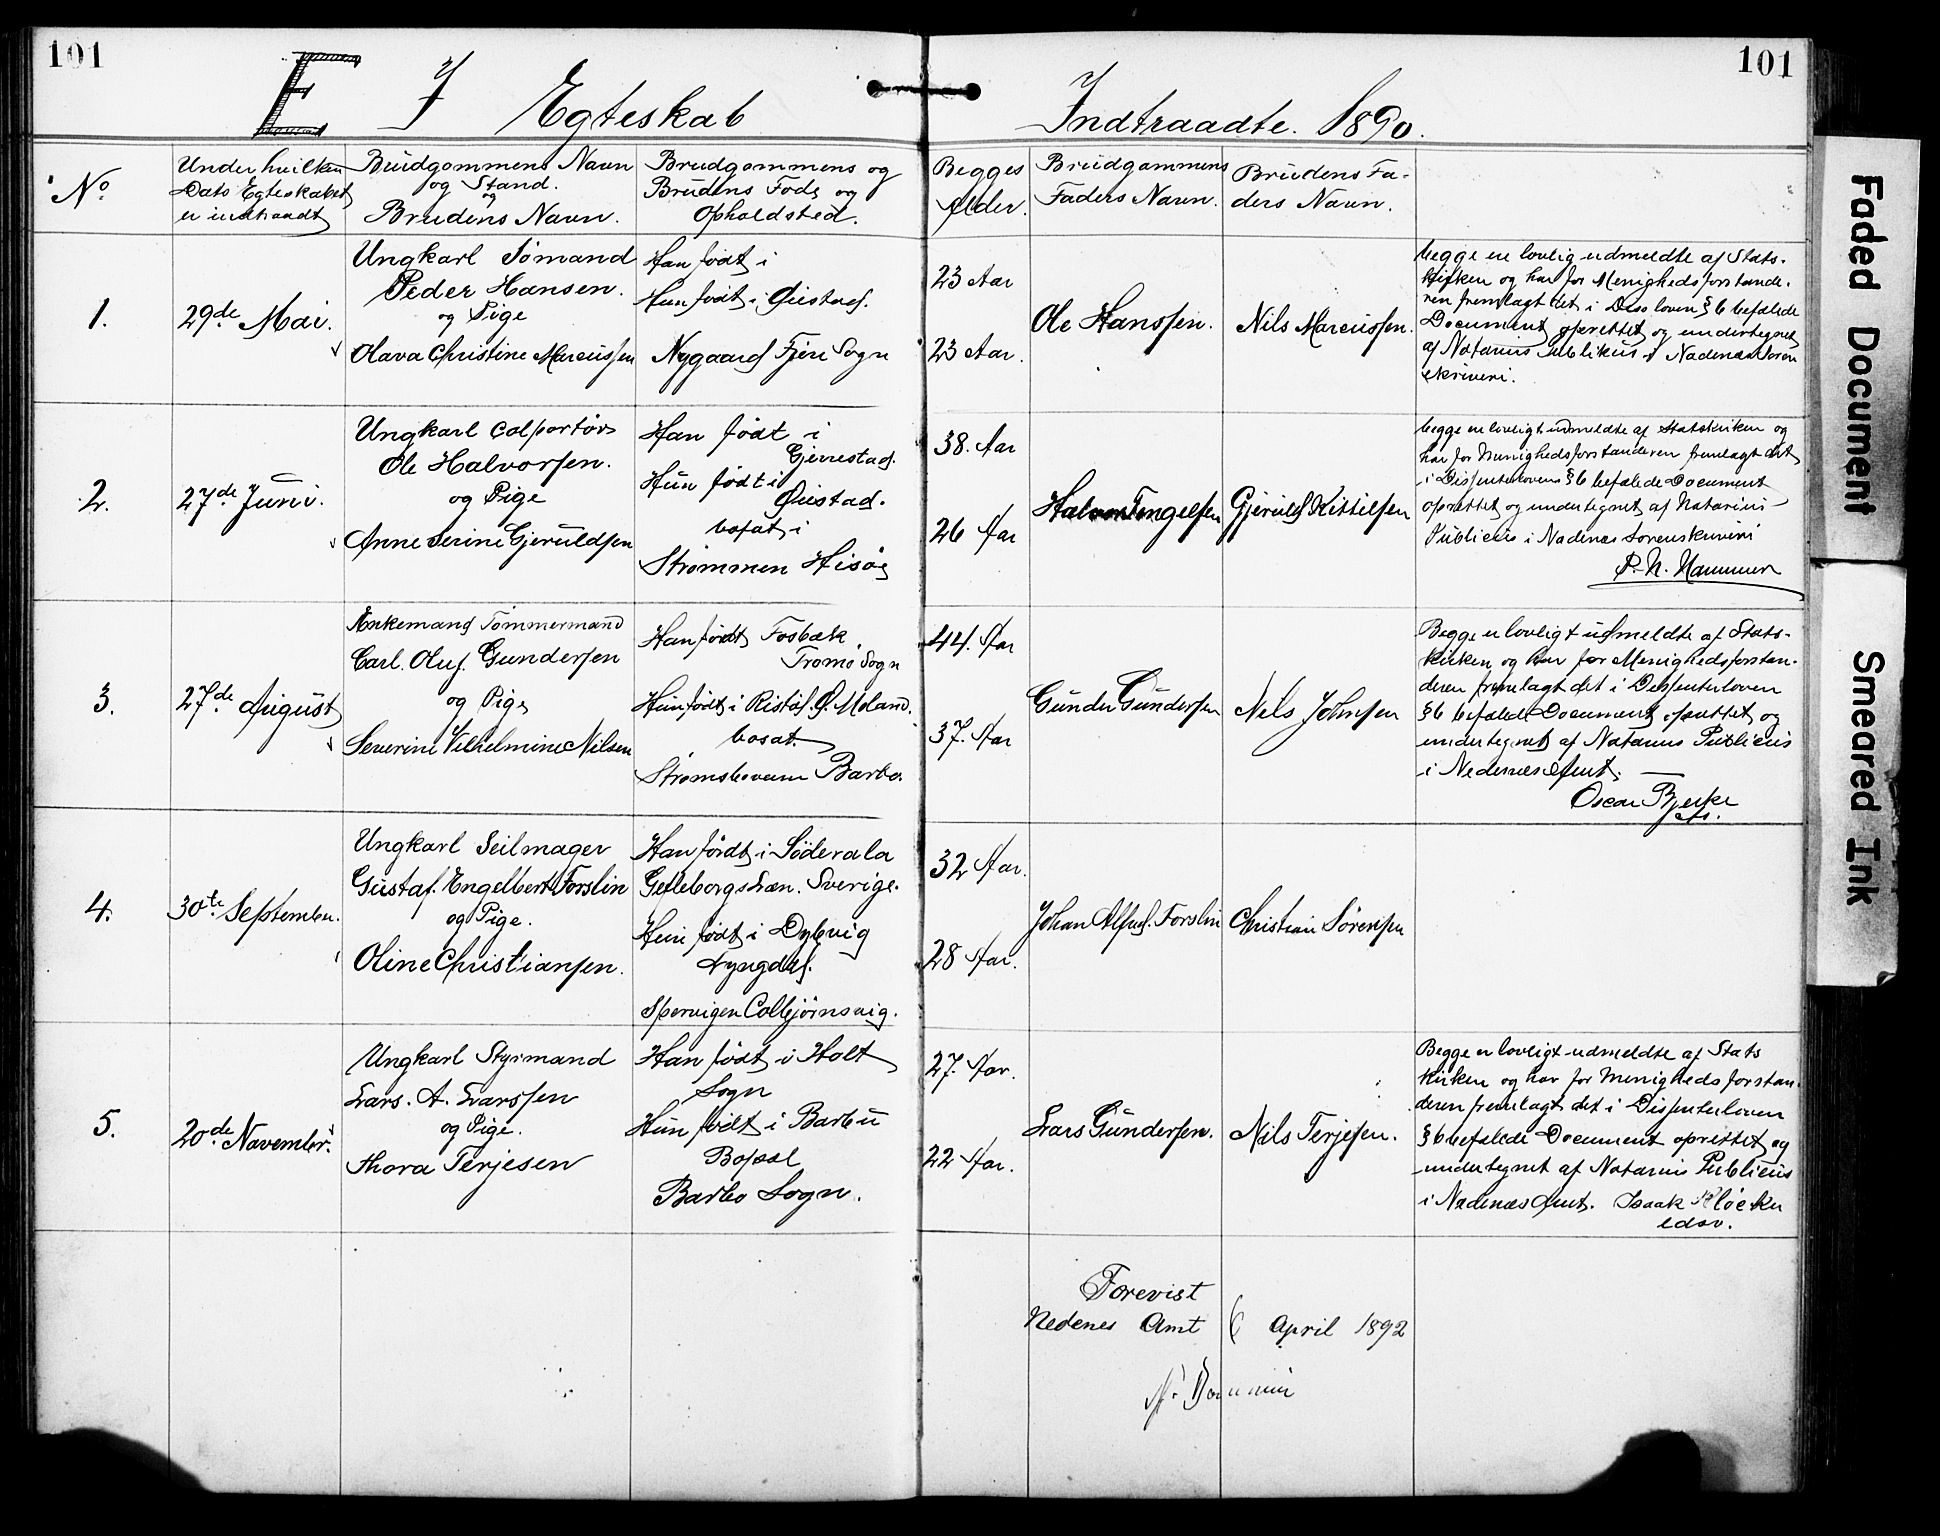 101
101
E I Egteskab Indtraadte. 1890.
No
Under hvilken
Dato Egteskabet
er indtraadt
Brudgommens Navn
og Stand.
og
Brudens Navn.
Brudgommens og
Brudens Føde og
Opholdsted.
Begges
Alder.
Brudgommens
Faders Navn.
Brudens Fa-
ders Navn.
1.
29de Mai.
Ungkarl Sømand
Peder Hansen.
og Pige
Olava Christine Marcussen
Han født i
Hun født i Øiestad.
Nygaard Fjære Sogn
23 Aar
23 Aar.
Ole Hanssen.
Nils Marcussen.
begge er lovlig udmeldte af Stats-
kirken og har for Menighedsforstande-
ren fremlagt det i Diss loven § 6 befalede
Document oprettet og undertegnet
af Notarius Publikus i Nadenæs Soren
skriveri.
2.
27de Juni.
Ungkarl Colportør
Ole Halvorsen.
og Pige
Anne Serine Gjeruldsen
Han født i
Gjerestad.
Hun født i
Øiestad.
bosat i
Strømmen Hisø
38. Aar
26 Aar
Halvor Tengelsen
Gjeruld Kittilsen
begge er lovligt udmeldte af Statskirken og
har for Menighedsforstanderen fremlagt det
i Dissenterlovens § 6 befalede Document
oprettet og undertegnet af Notarius
Publicus i Nadenæs Sorenskriveri
P. N.
3.
27de August
Enkemand Tømmermand
Carl. Oluf. Gundersen
og Pige
Severine Vilhelmine Nilsen
Han født Fosbæk
Tromø Sogn
Hun født i Ristøl. Ø. Moland.
bosat.
Strømsbovenn Barbo.
44. Aar
37. Aar
Gunder Gundersen
Nels Johnsen
Begge er lovligt udmeldte af Stats-
kirken og har for Menighedsforstan-
deren fremlagt det i Dissenterloven
§ 6 befalede Document oprettet og
undertegnet af Notarius Publicus
i Nedenæs Amt.
Oscar
4.
30te September.
Ungkarl Seilmager
Gustaf. Engelbert Forslin
og Pige.
Oline Christiansen.
Han født i Söderala
Gefleborgs Læn. Sverige.
Hun født i Dybvig
Lyngdal.
Spervigen Colbjørnsvig.
32 Aar.
28 Aar.
Johan Alfred. Forslin
Christian Sørensen
5.
20de November.
Ungkarl Styrmand
Lars. A. Larssen
og Pige.
Thora Terjesen
Han født i Holt
Sogn
Hun født i Barbu
Bosat
Barbo Sogn.
27. Aar.
22 Aar.
Lars Gundersen.
Nils Terjesen.
Begge er lovligt udmeldte af Stats
kirken og har for Menighedsforstan-
deren fremlagt det i Dissenterloven
§ 6 befalede Document oprettet og
undertegnet af Notarius Publicus
i Nedenæs Amt. Isaak Kløcker
edsv.
Forevist
Nedenes Amt 6 April 1892
Faded Document
Smeared Ink